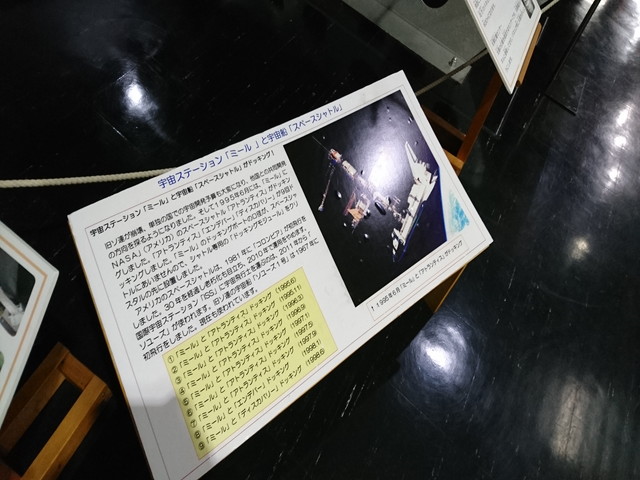 宇宙ステーション「ミール」と宇宙船「スペースシャトル」
宇宙ステーション「ミール」と宇宙船「スペースシャトル」がドッキング！
旧ソ連が崩壊、単独の国での宇宙開発予算も大変になり、他国との共同開発
の方向を探るようになりました。そして1995年6月には、「ミール」に
NASA（アメリカ）のスペースシャトル「アトランティス」がドッキン
グしました。「アトランティス」「エンデバー」「ディスカバリー」が9回ド
ッキングしましたが、「ミール」のドッキングポートの
スタルの先に設置しました。
アメリカのスペースシャトルは、1981年に「コロンビア」が初飛行を
しました。30年を経過し老朽化も目立ち、2010年で運用をやめます。
国際宇宙ステーション「ISS」に宇宙飛行士を運ぶのは、2011年から「
ソユーズ」が使われます。旧ソ連の宇宙船「ソユーズ1号」は1967年に
初飛行をしました。現在も使われています。
①「ミール」と「アトランティス」ドッキング (1995.6)
②「ミール」と「アトランティス」ドッキング (1995.11)
③「ミール」と「アトランティス」ドッキング (1996.3)
④「ミール」と「アトランティス」ドッキング (1996.9)
⑤「ミール」と「アトランティス」ドッキング (1997.1)
⑥「ミール」と「アトランティス」ドッキング (1997.5)
⑦「ミール」と「アトランティス」ドッキング (1997.9)
⑧「ミール」と「エンデバー」ドッキング (1998.1)
⑨「ミール」と「ディスカバリー」ドッキング (1998.6)
↑1995年6月「ミール」と「アトランティス」がドッキング